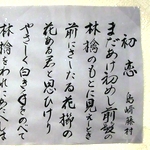 初恋
島崎藤村
まだあげ初めし前髪の
林檎のもとに見えしとき
前にさしたる花櫛の
花ある君と思ひけり
やさしく白き手をのべて
林檎をわれにあたへしは